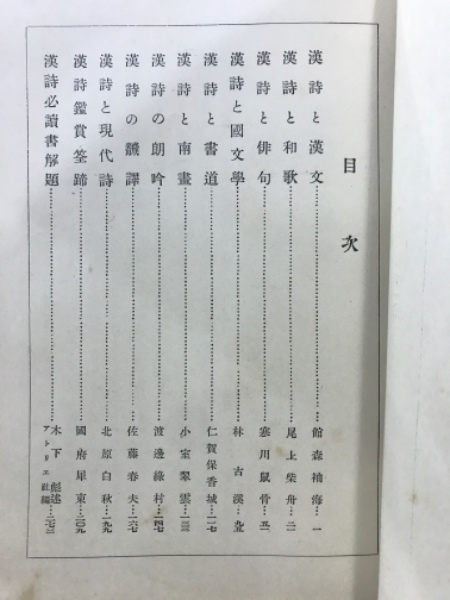 目次
漢詩と漢文 館森袖海 一
漢詩と和歌 尾上柴舟 二一
漢詩と俳句 寒川鼠骨 五一
漢詩と國文學 林古溪 九五
漢詩と書道 仁賀保香城 一一七
漢詩と南畫 小室翠雲 一三三
漢詩の朗吟 渡邊緑村 一四七
漢詩の飜譯 佐藤春夫 一六七
漢詩と現代詩 北原白秋 一九九
漢詩鑑賞筌蹄 國府犀東 二〇九
漢詩必讀書解題 木下彪述 アトリエ社編 二七三